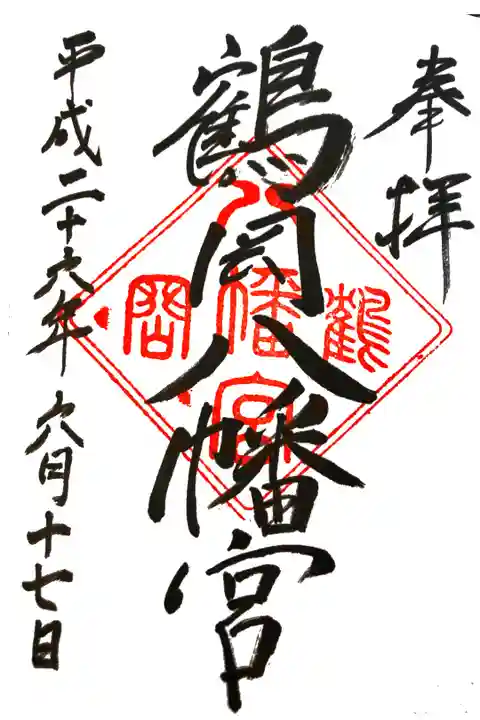 奉拝
鶴岡八幡宮
鶴
八幡宮
岡
平成二十六年六月十七日